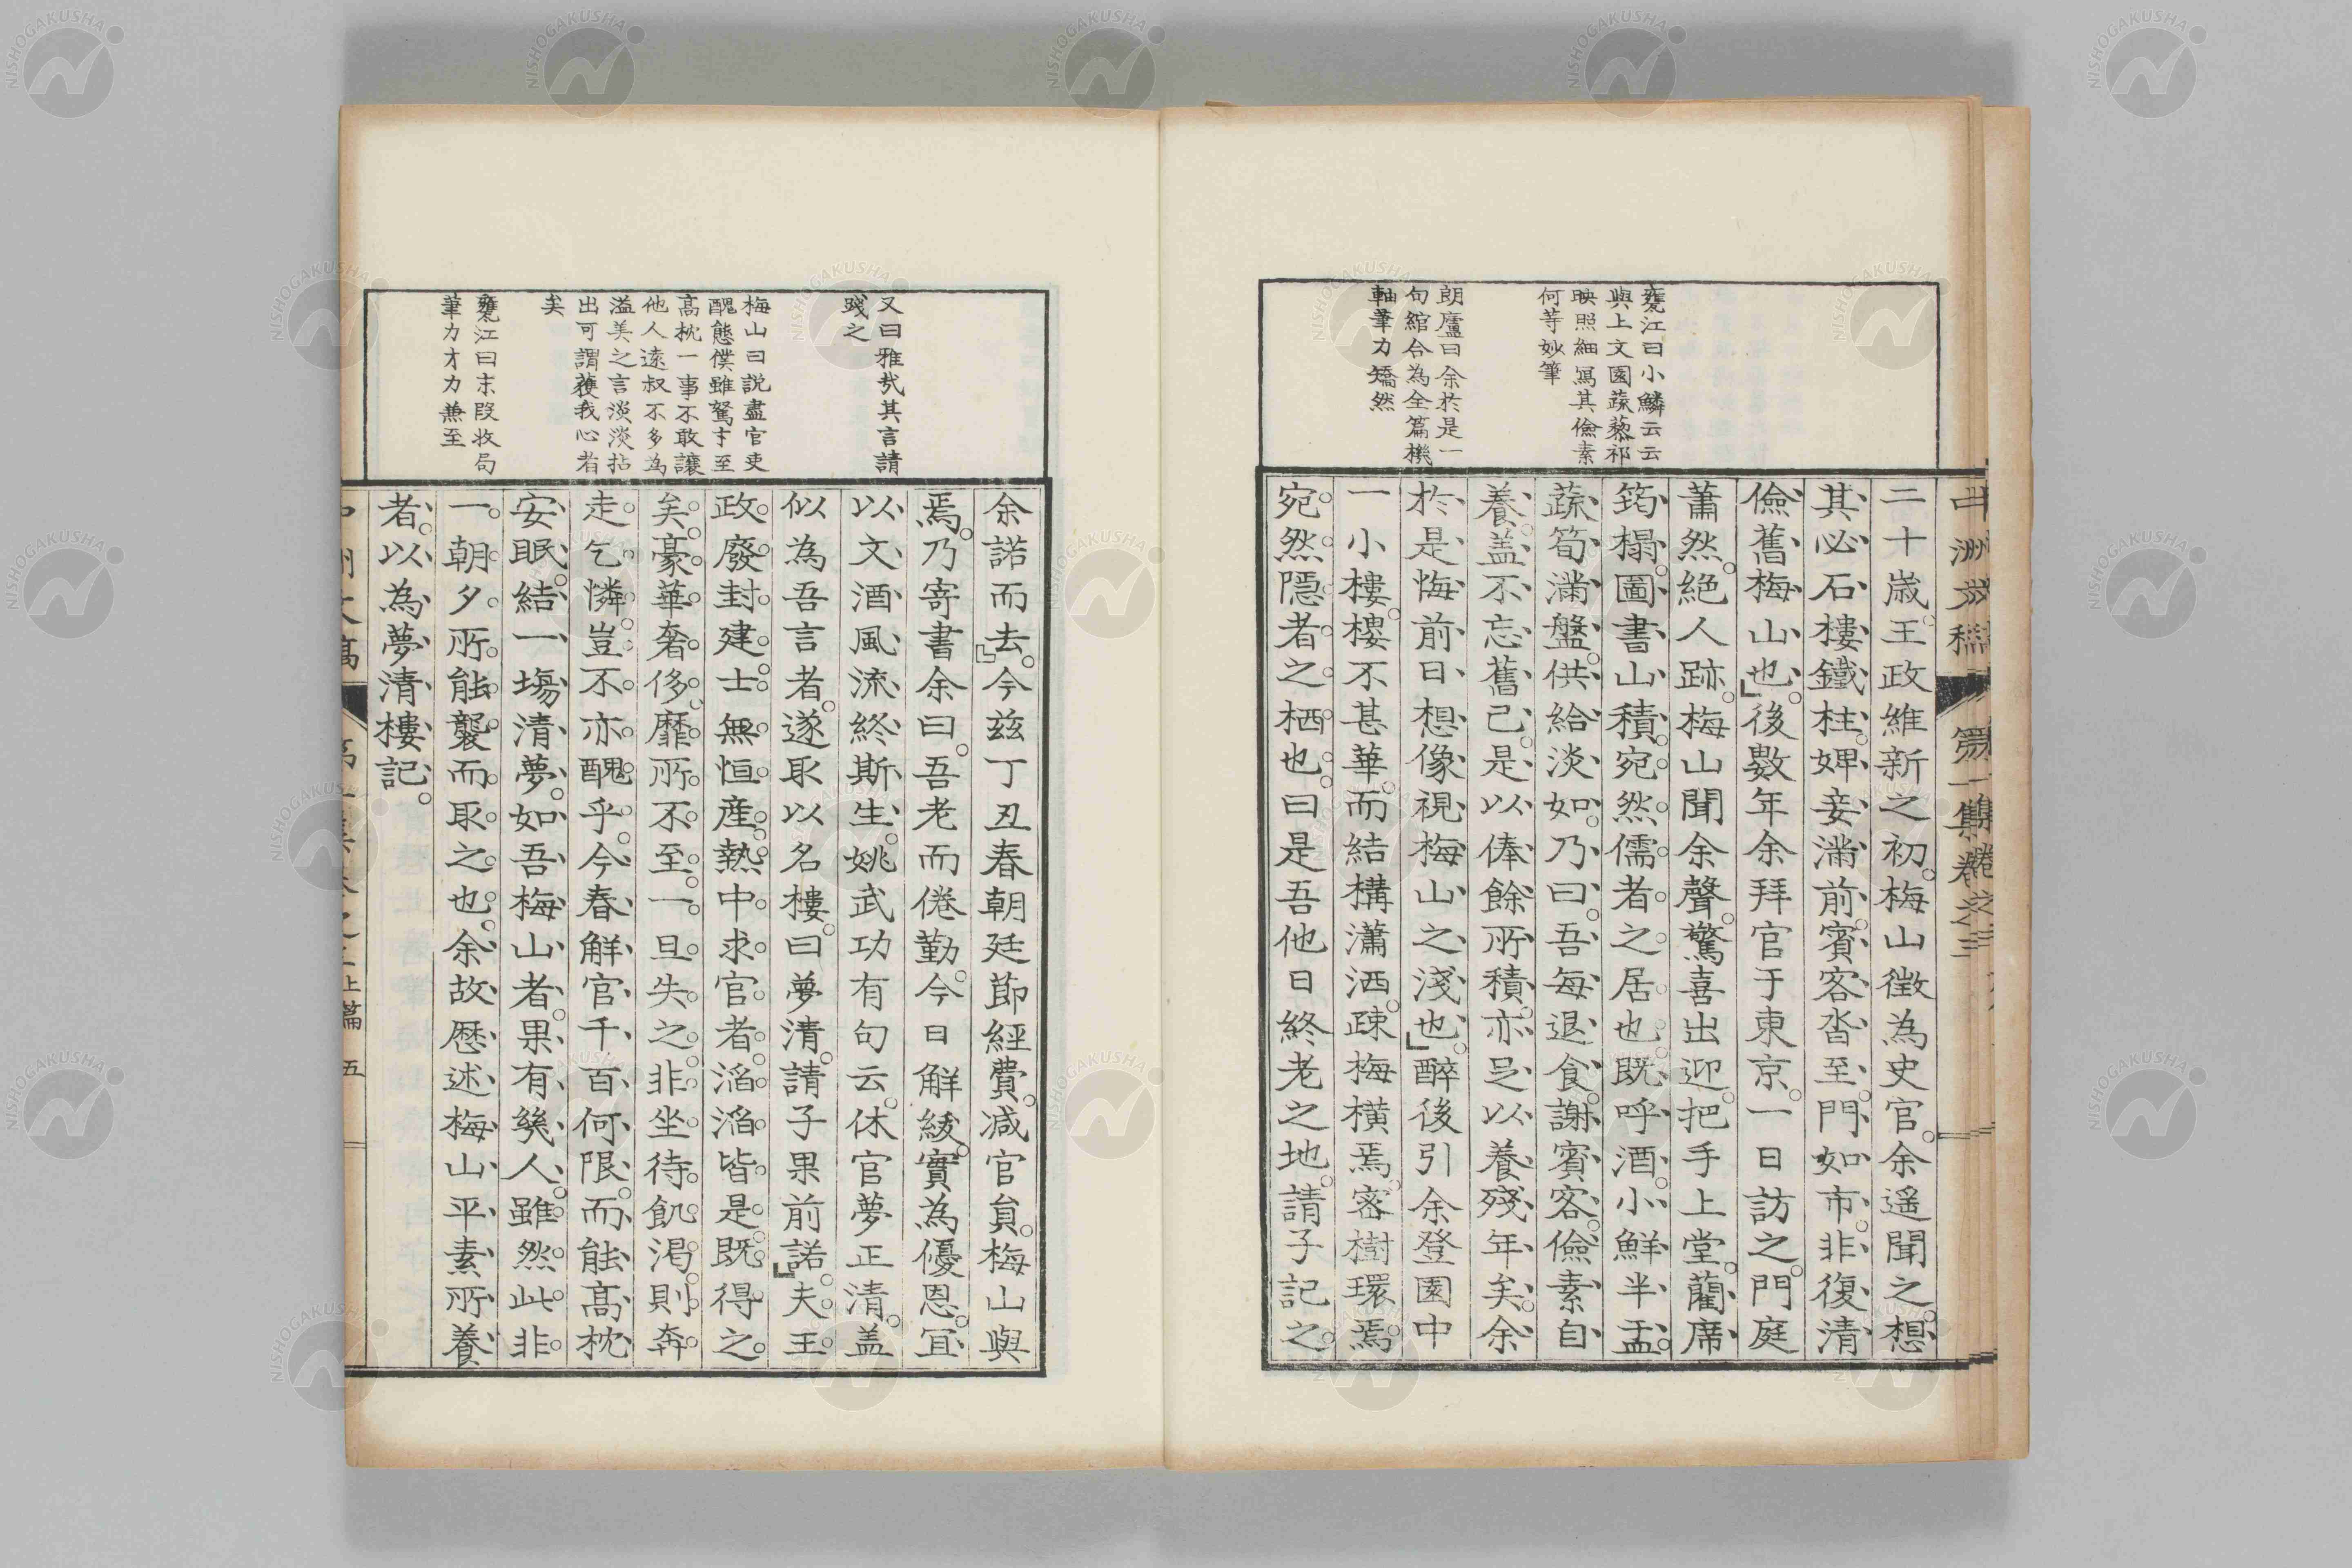 甕江曰小鱗云云
與上文園蔬藜祁
映照細寫其儉素
何等妙筆
朗廬曰余於是一
句綰合為全篇機
軸筆力矯然
二十歳王政維新之初。梅山徴為史官。余遥聞之。想
其必石樓鐵柱。婢妾滿前。賓客沓至。門如市。非復清
儉舊梅山也。」後數年余拜官于東京。一日訪之。門庭
蕭然。絕人跡。梅山聞余聲。驚喜出迎。把手上堂。藺席
筠榻。圖書山積。宛然儒者之居也。既呼酒。小鮮半盂。
蔬筍滿盤。供給淡如。乃曰。吾每退食。謝賓客。儉素自
養。盖不忘舊己。是以俸餘所積。亦足以養殘年矣。余
於是悔前日想像視梅山之淺也。」醉後引余登園中
一小樓。樓不甚華。而結構瀟洒。疎梅横焉。密樹環焉。
宛然隱者之栖也。曰是吾他日終老之地。請子記之。
中洲文稿
第一集卷之三
又曰雅哉其言請
踐之
梅山曰説盡官吏
醜態僕雖駑才至
高枕一事不敢讓
他人遠叔不多為
溢美之言淡淡拈
出可謂獲我心者
矣
甕江曰末段收局
筆力才力兼至
余諾而去。」今兹丁丑春朝廷節經費。减官員。梅山與
焉。乃寄書余曰。吾老而倦勤。今日解綬。實為優恩。宜
以文酒風流終斯生。姚武功有句云。休官夢正清。盖
似為吾言者。遂取以名樓。曰夢清。請子果前諾。」夫王
政廢封建。士無恒産。熱中求官者。滔滔皆是。既得之
矣。豪華奢侈。靡所不至。一旦失之。非坐待飢渇。則奔
走乞憐。豈不亦醜乎。今春解官千百何限。而能高枕
安眠。結一場清夢。如吾梅山者。果有幾人。雖然此非
一朝夕所能襲而取之也。余故歴述梅山平素所養
者。以為夢清樓記。
上篇 五